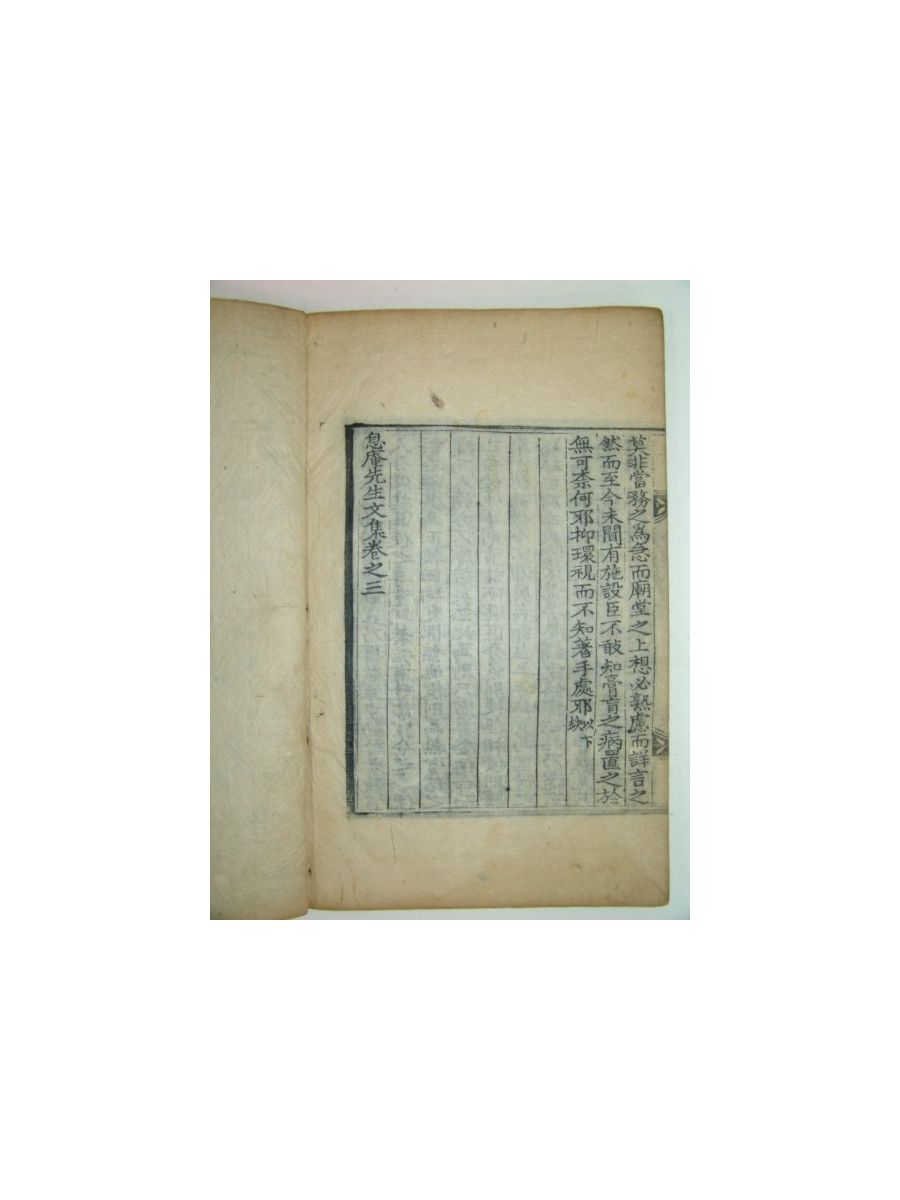 莫非當務之為急而廟堂之上想必熟慮而詳言之
然而至今未聞有施設臣不敢知膏肓之病置之於
無可柰何耶抑環視而不知著手處耶以下缺
息庵先生文集卷之三